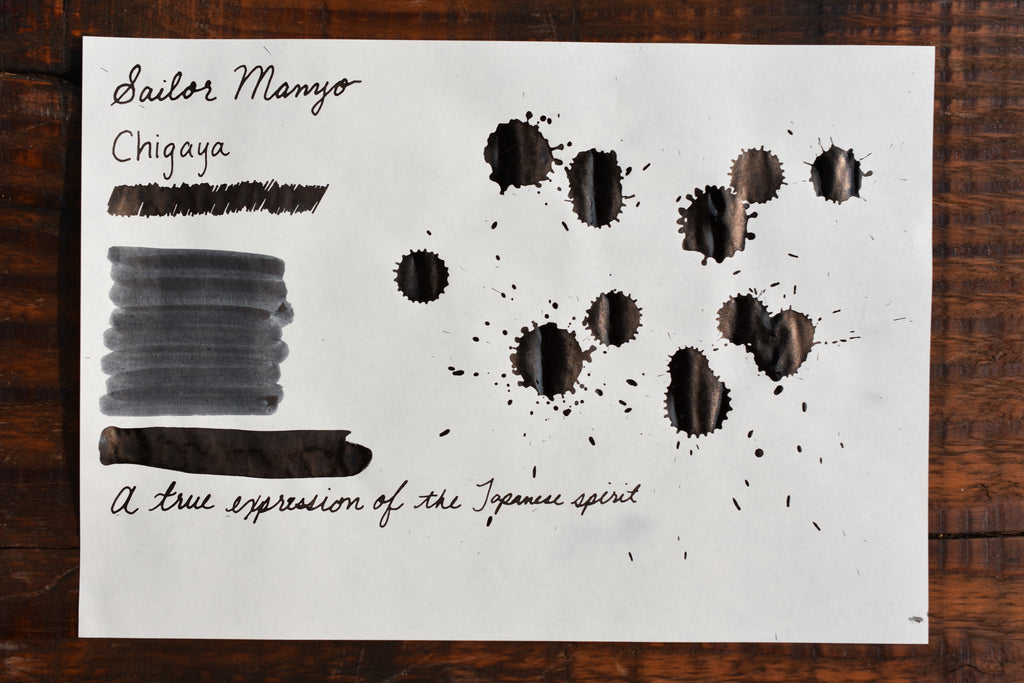 Sailor Manyo
Chigaya
A true expression of the Japanese spirit